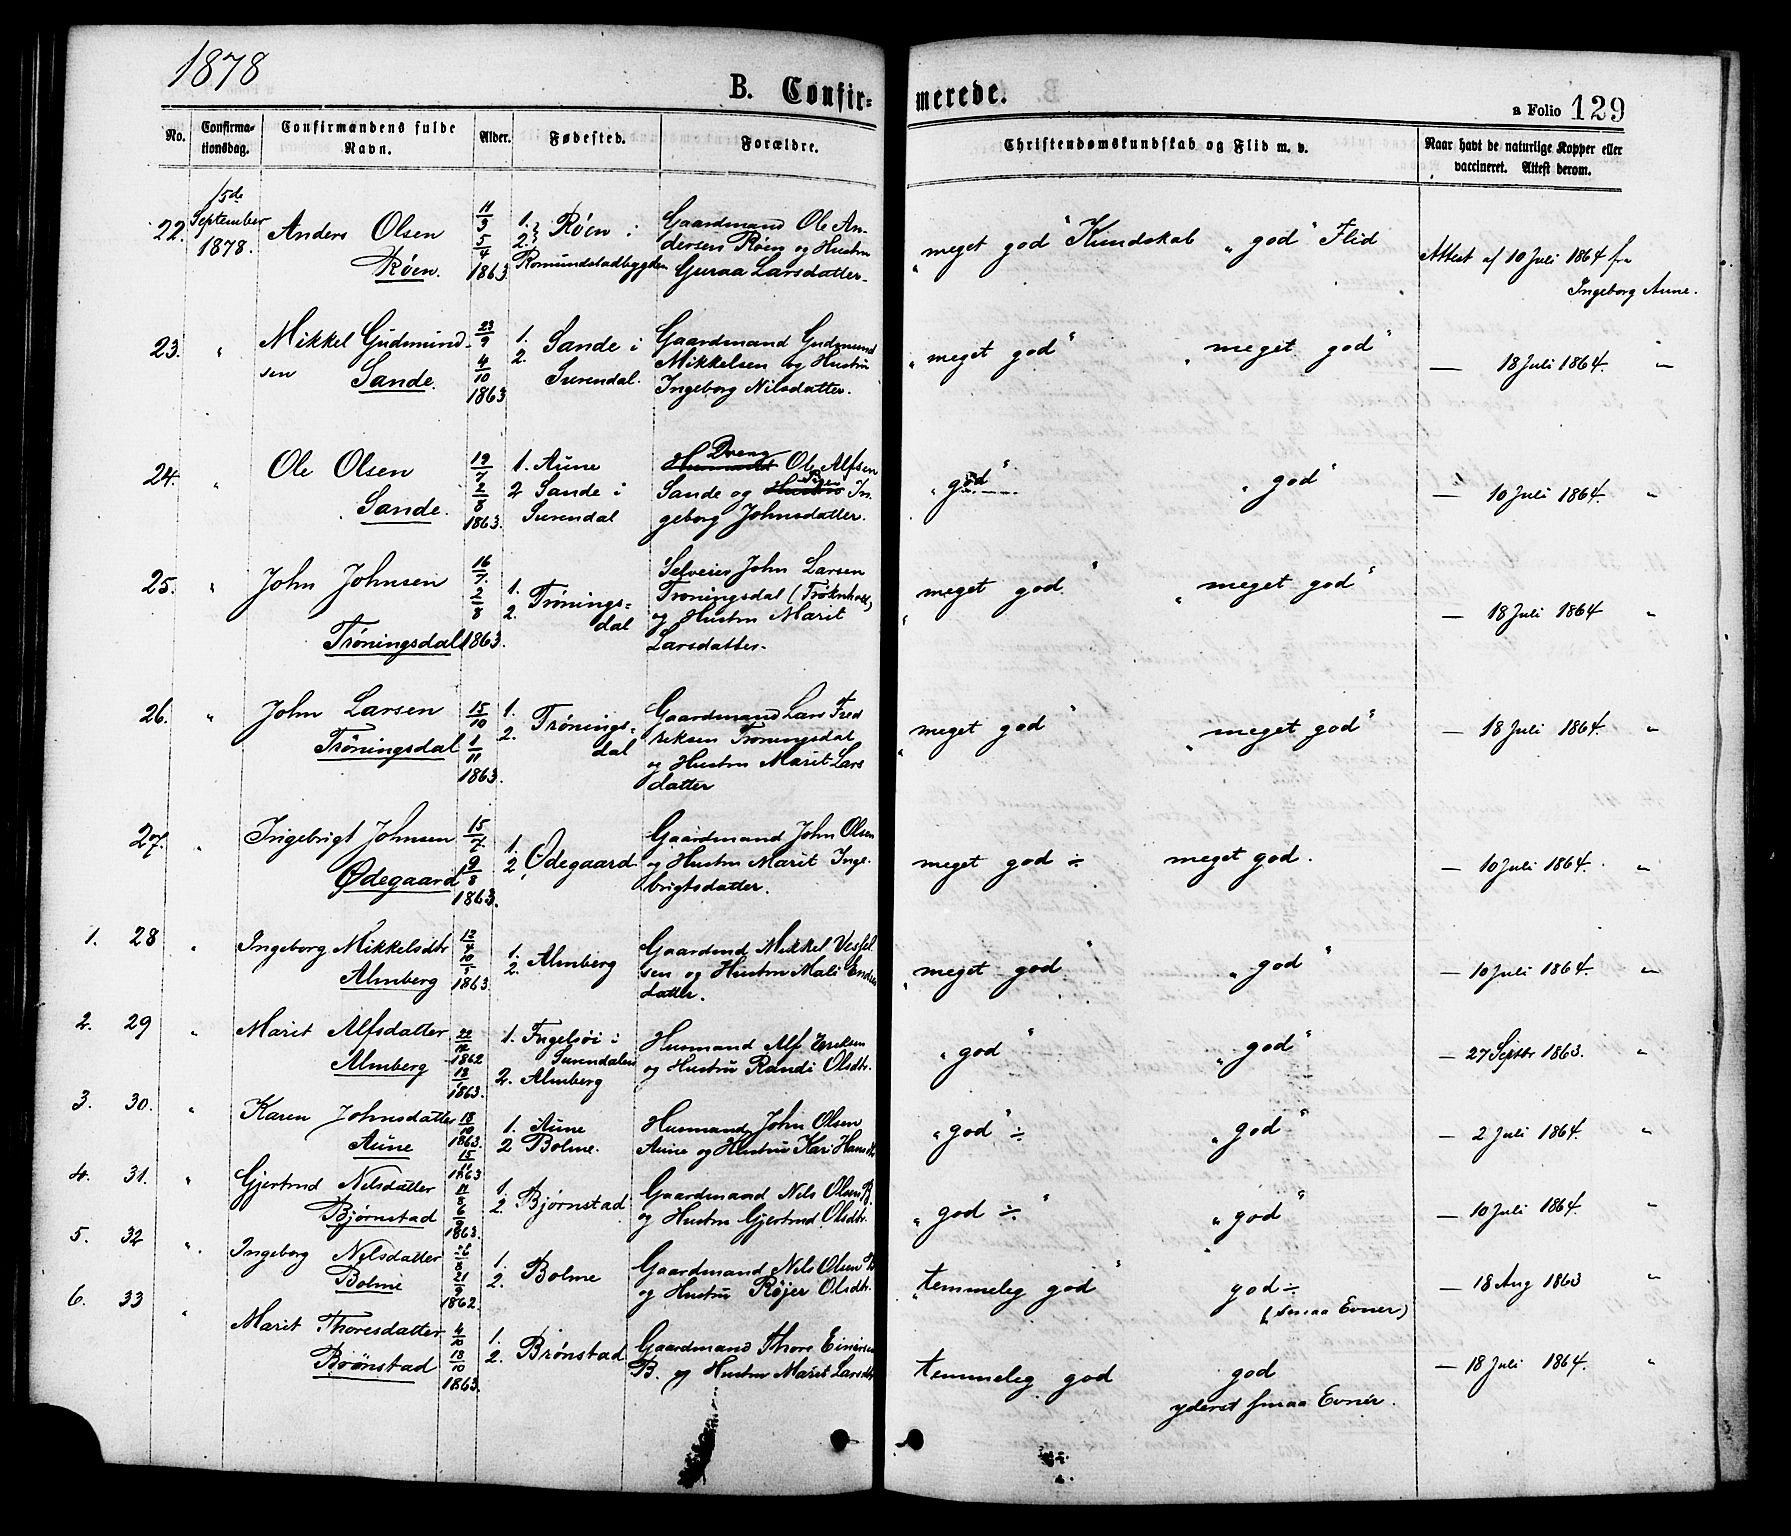 1878
B. Confir-
merede.
a Folio 129
No.
Confirma-
tionsdag.
Confirmandens fulde
Navn.
Alder.
Fødested.
Forældre.
Christendomskundskab og Flid m. v.
Naar havt de naturlige Kopper eller
vaccineret. Attest derom.
22. 15de September 1878. Anders Olsen Røen. 11/3 5/4 1863 1. 2. Røen i Romundstadbygden
Gaardmand Ole An-
dersen Røen og Hustru
Guraa Larsdatter.
"meget god" Kundskab "god" Flid
Attest af 10 Juli 1864 fra
Ingeborg Aune.
23. " Mikkel Gudmund-
sen Sande. 23/9 4/10 1863 1. 2. Sande i Surendal.
Gaardmand Gudmund
Mikkelsen og Hustru
Ingeborg Nilsdatter.
"meget god" "meget god"
— 18 Juli 1864. "
24. " Ole Olsen
Sande. 19/7 2/8 1863. 1. Aune
2 Sande i
Surendal
Dreng Ole Alfsen
Sande og Pigen In-
geborg Johnsdatter.
"god" "god"
— 10 Juli 1864. "
25. " John Johnsen
Trøningsdal 16/7. 2/8 1863. 1. 2. Trønings-
dal
Selveier John Larsen
Trøningsdal
og Hustru Marit
Larsdatter.
"meget god" "meget god"
— 18 Juli 1864 "
26. " John Larsen
Trøningsdal 15/10 1/11 1863. 1. 2. Trønings-
dal
Gaardmand Lars Fred
riksen Trøningsdal
og Hustru Marit Lars
datter
"meget god" "meget god"
— 18 Juli 1864. "
27. " Ingebrigt Johnsen
Ødegaard 15/7. 9/8 1863. 1. 2 Ødegaard
Gaardmand John Olsen
og Hustru Marit Inge-
brigtsdatter.
meget god ÷ meget god.
— 10 Juli 1864. "
1. 28 " Ingeborg Mikkelsdtr
Almberg 12/4 10/5 1863 1. 2. Almberg
Gaardmd Mikkel
sen og Hustru Mali Endres
datter.
"meget god" "god"
— 10 Juli 1864. "
2. 29 " Marit Alfsdatter
Almberg 22/12 1862 18/1 1863. 1. i
Surendalen
2. Almberg
Husmand Alf Eriksen
og Hustru Randi Olsdtr.
"god" "god"
— 27 Septbr 1863. "
3. 30. " Karen Johnsdatter
Aune 18/10 1863. 15/11 1863 1. Aune
2 Bolme.
Husmand John Olsen
Aune og Hustru Kari Hansdtr
"god" ÷ "god"
— 2 Juli 1864. "
4. 31. " Gjertrud Nilsdatter
Bjørnstad 11/8 6/9 1863. 1. 2. Bjørnstad
Gaardmand Nils Olsen B.
og Hustru Gjertrud Olsdtr.
"god ÷" "god"
— 10 Juli 1864. "
5. 32 " Ingeborg Nilsdatter
Bolme 26/8 21/9 1862. 1. 2. Bolme
Gaardmand Nils Olsen B
og Hustru Røjer Olsdtr.
"temmelig god" god ÷
(smaa Evner)
— 18 Aug 1863 "
6. 33 " Marit Thoresdatter
Brønstad 4/10 18/10 1863. 1. 2. Brønstad
Gaardmand Thore Einarsen
B. og Hustru Marit Larsdtr
temmelig god god
yderst smaa Evner.
— 18 Juli 1864. "